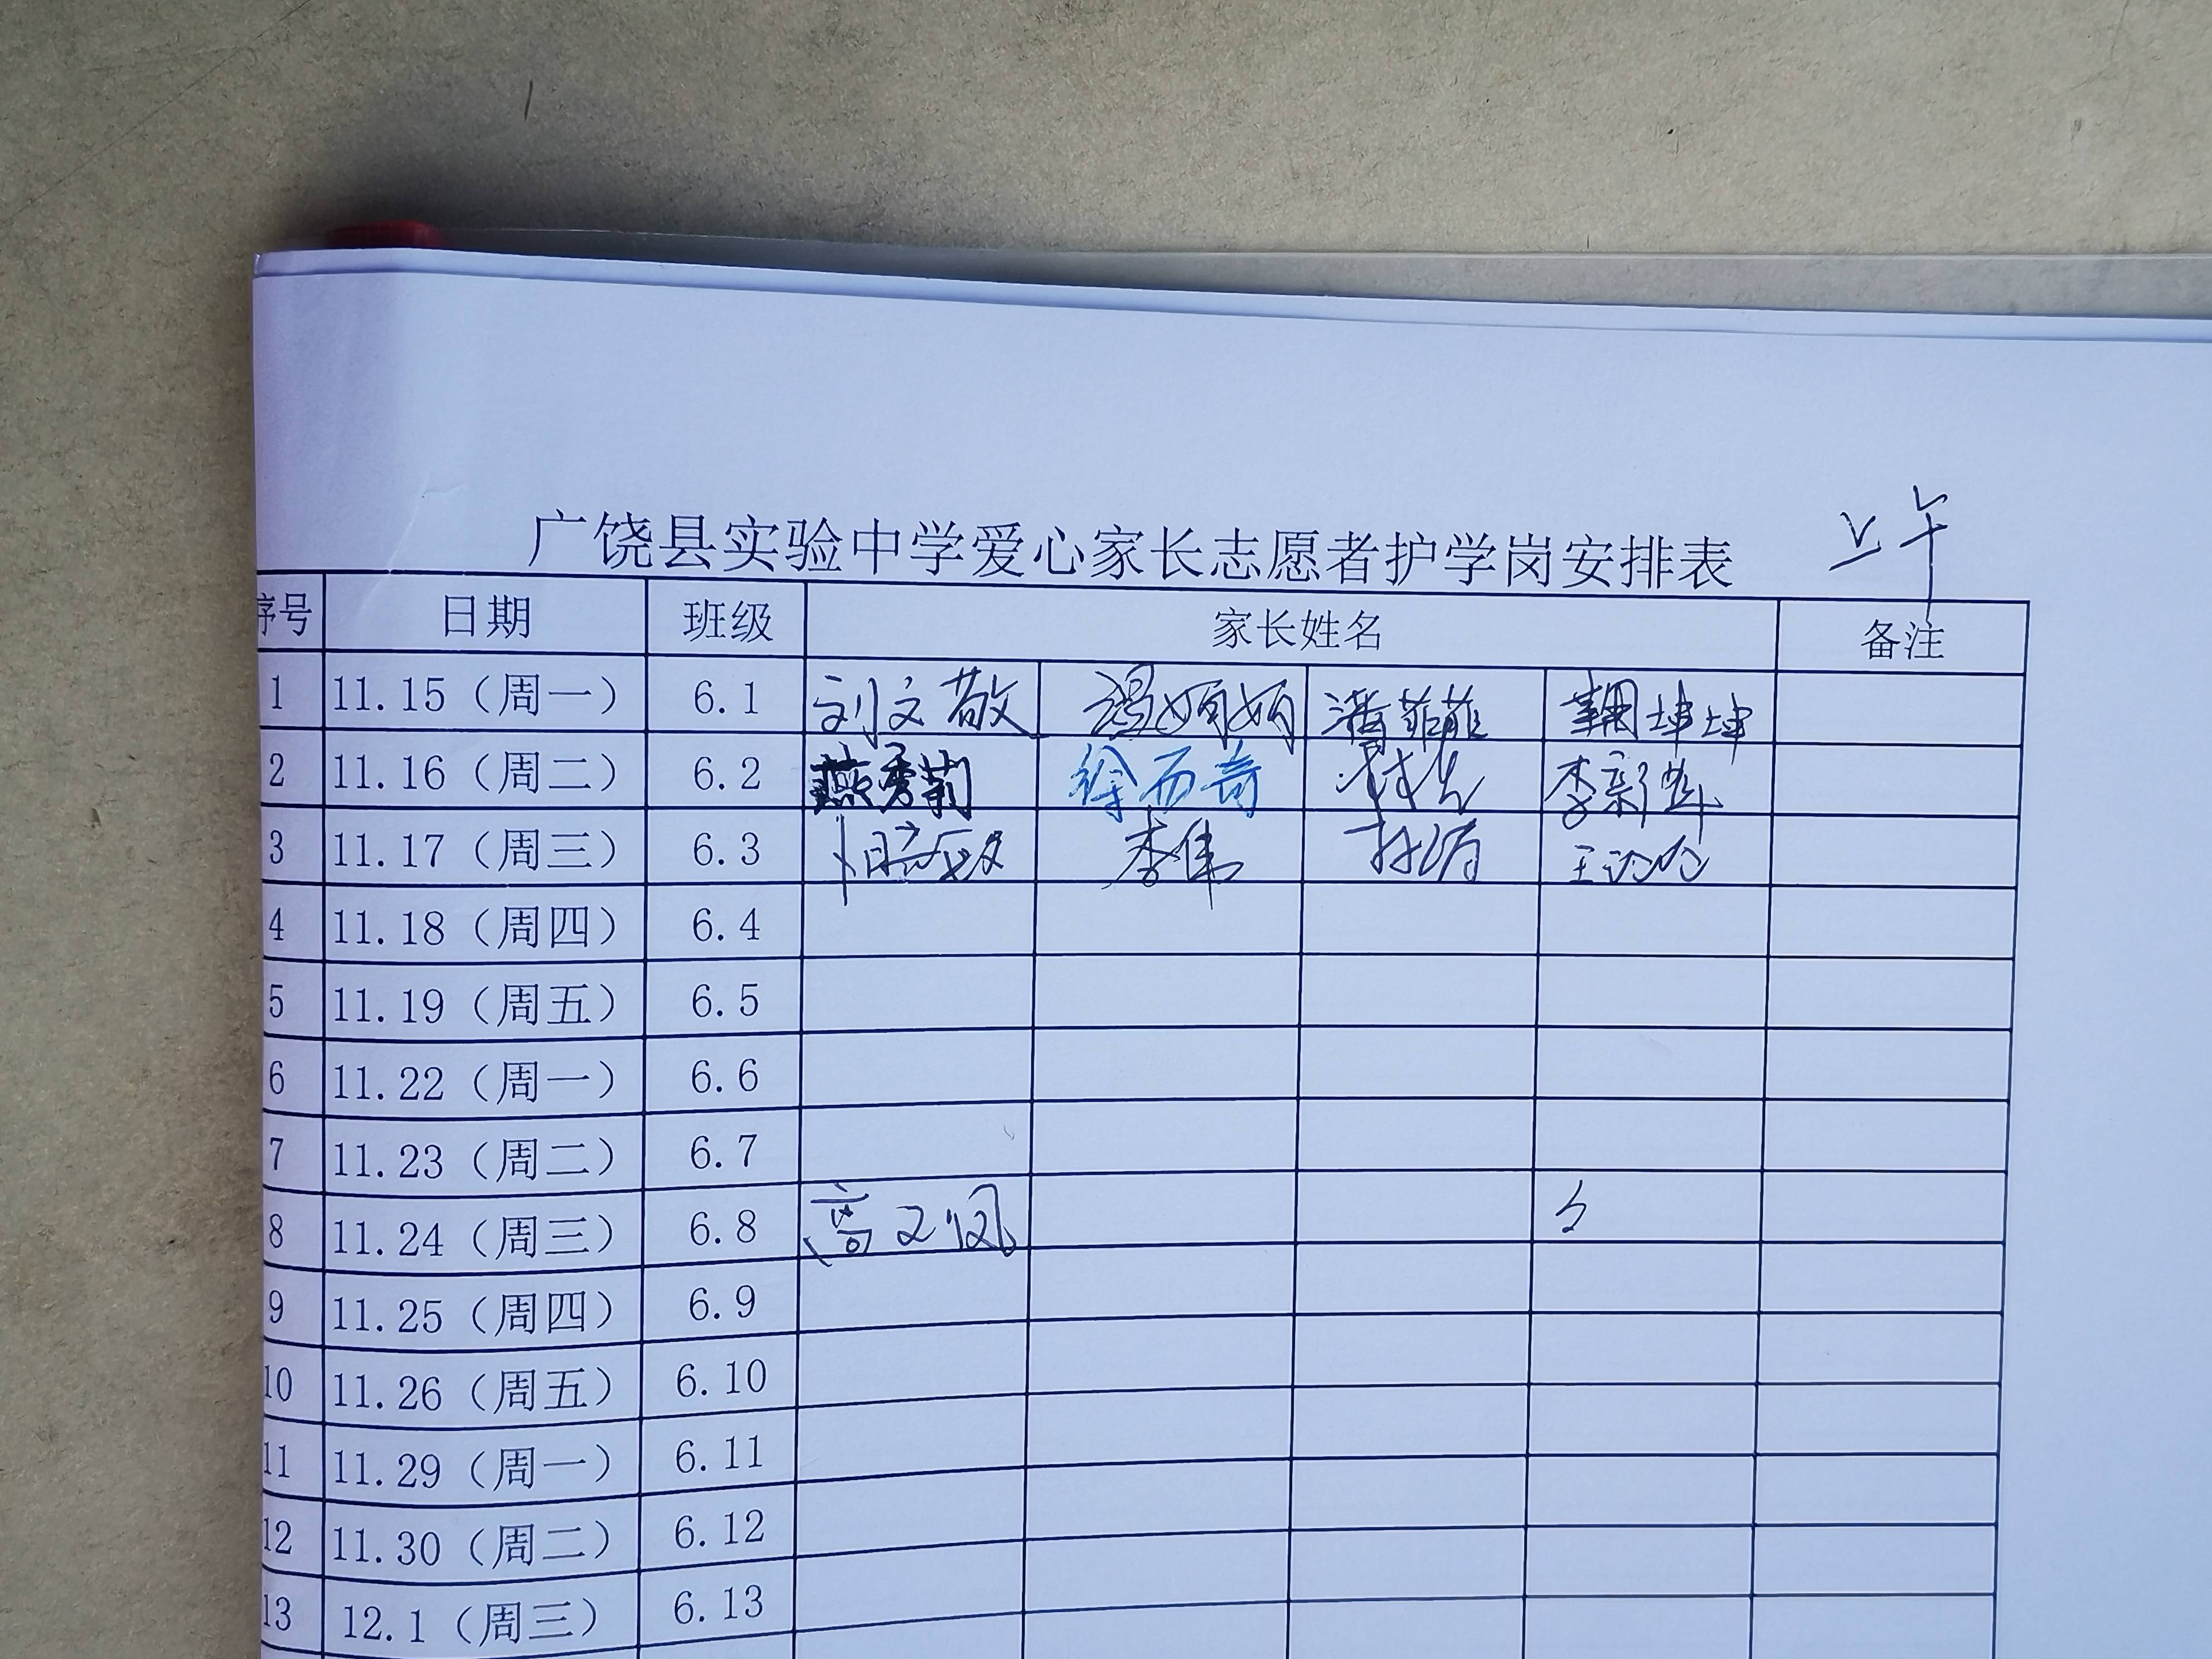 广饶县实验中学爱心家长志愿者护学岗安排表 上午
序号 日期 班级 家长姓名 备注
1 11.15（周一） 6.1 刘文敬 冯娟娟 潘菲菲 坤坤
2 11.16（周二） 6.2 燕秀莉 徐西奇 李新
3 11.17（周三） 6.3 李伟 孙涛 王
4 11.18（周四） 6.4
5 11.19（周五） 6.5
6 11.22（周一） 6.6
7 11.23（周二） 6.7
8 11.24（周三） 6.8 高文凤
9 11.25（周四） 6.9
10 11.26（周五） 6.10
11 11.29（周一） 6.11
12 11.30（周二） 6.12
13 12.1（周三） 6.13